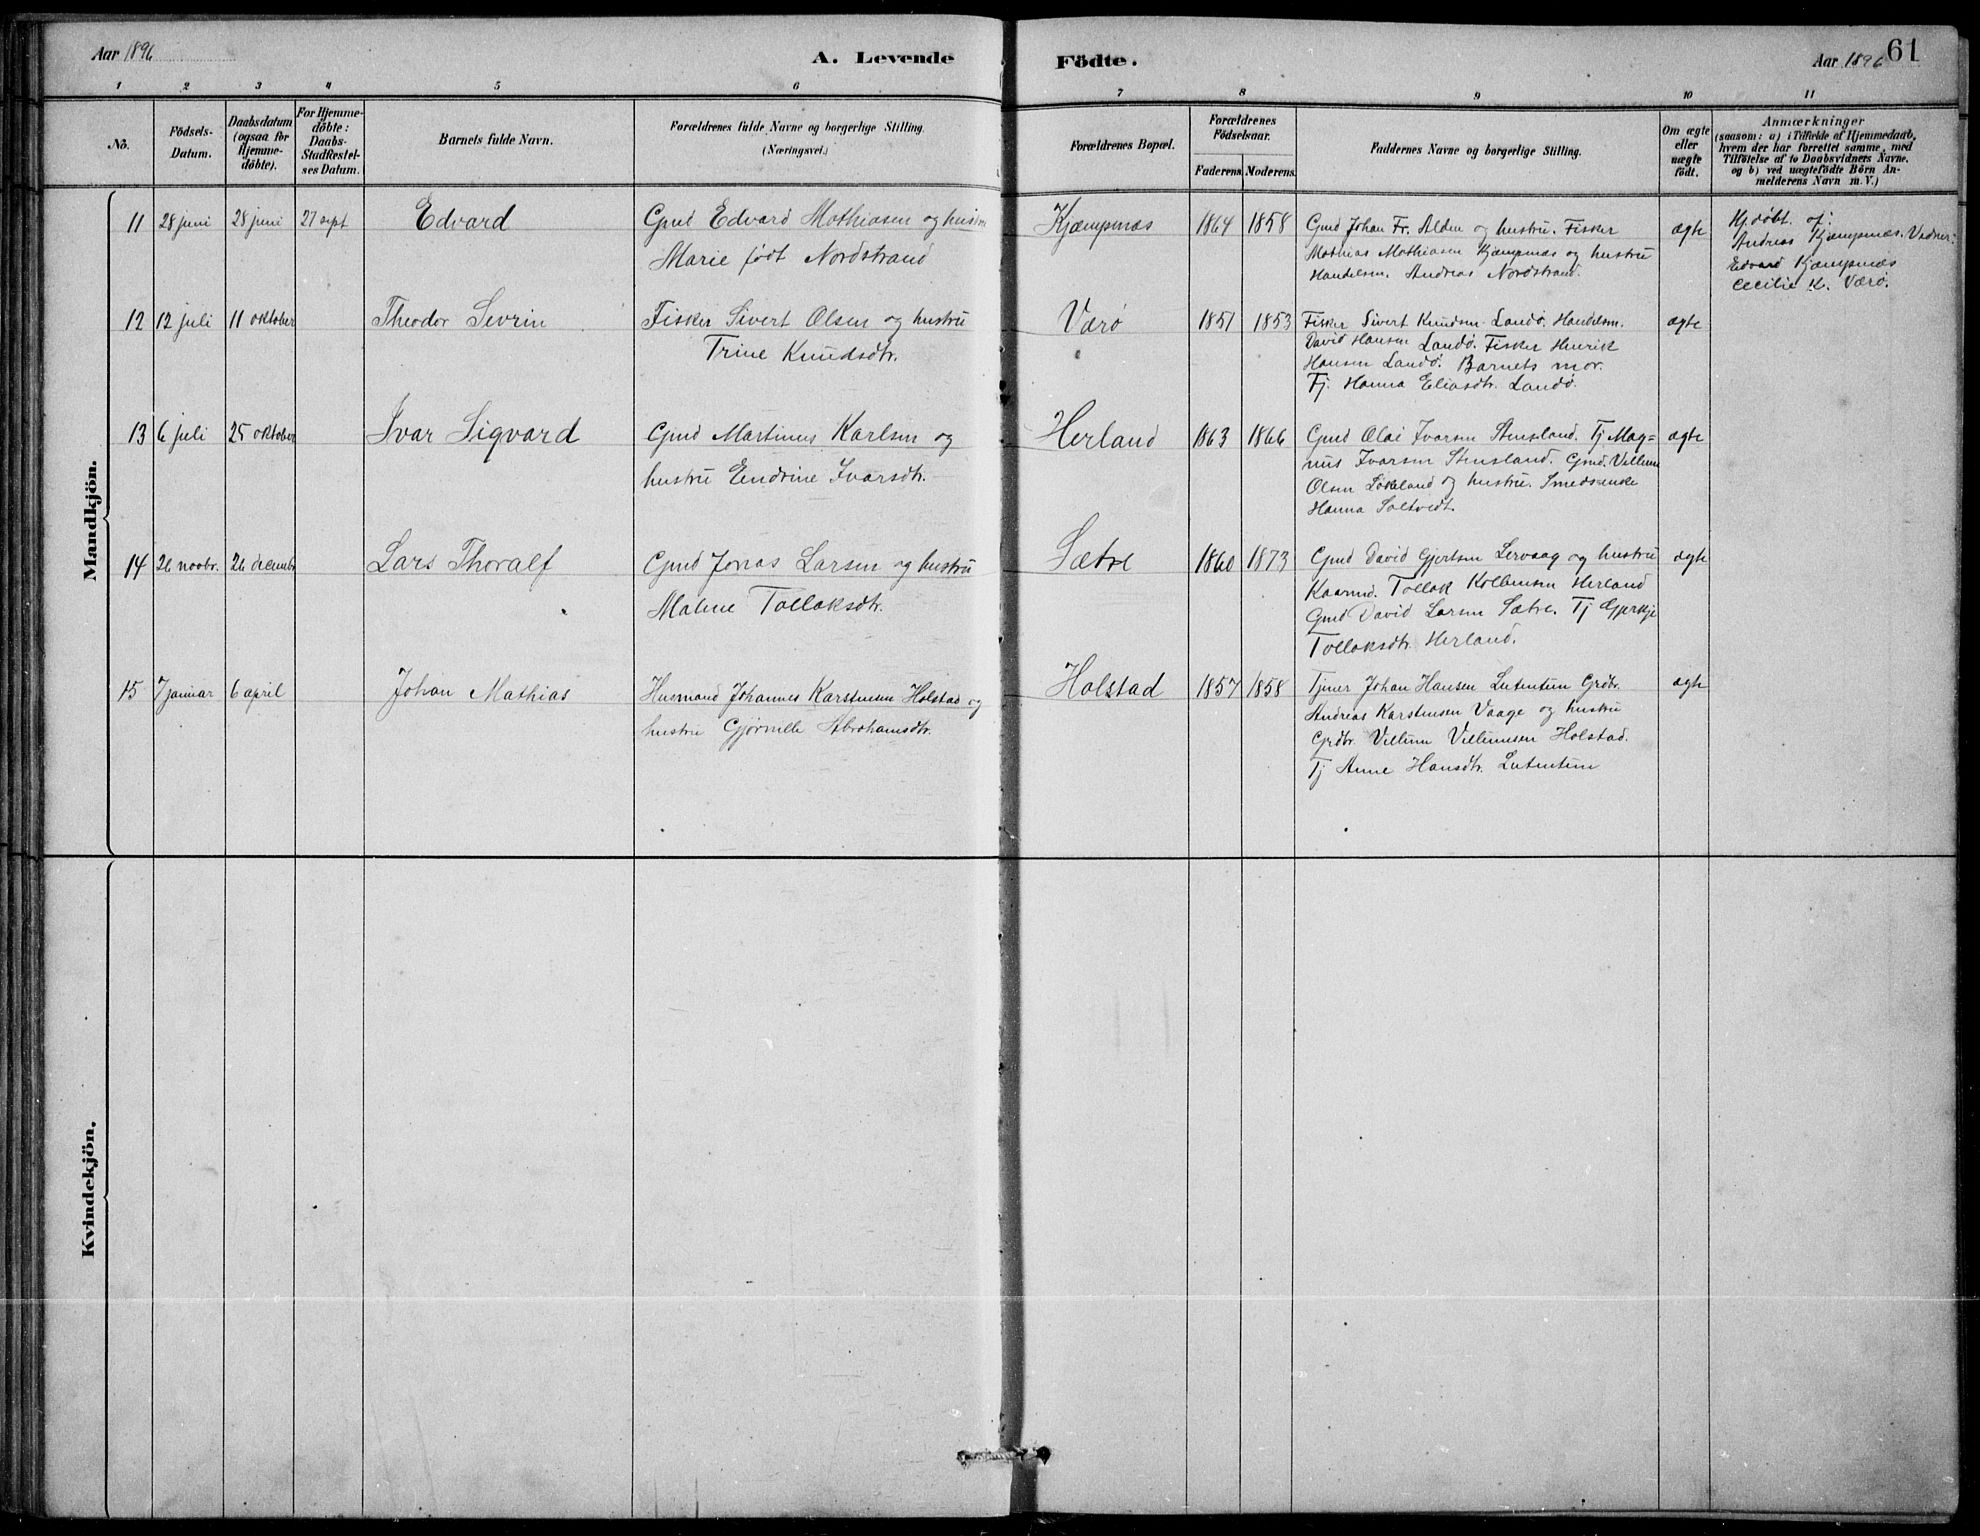 Aar 1896
A. Levende
Födte.
Aar 1896
61
1 2 3 4 5 6 7 8 9 10 11
No.
Födsels-
Datum.
Daabsdatum
(ogsaa for
Hjemme-
döbte).
For Hjemme-
döbte:
Daabs-
Stadfæstel-
ses Datum.
Barnets fulde Navn.
Forældrenes fulde Navne og borgerlige Stilling.
(Næringsvei.)
Forældrenes Bopæl.
Forældrenes
Födselsaar.
Faderens. Moderens.
Faddernes Navne og borgerlige Stilling.
Om ægte
eller
uægte
födt.
Anmærkninger
(saasom: a) i Tilfælde af Hjemmedaab,
hvem der har forrettet samme, med
Tilföielse af to Daabsvidners Navne.
og b) ved uægtefödte Börn An-
melderens Navn m. V.)
Mandkjön.
11 28 juni 28 juni 27 sept Edvard
Gmd Edvard Mathiasen og hustru
Marie født Nordstrand
Kjæmpnæs 1864 1858
Gmd Johan Fr. Alden og hustru. Fisker
Mathias Mathiasen Kjæmpnæs og hustru
Handelsm. Andreas Nordstrand.
ægte
Hj.døbt af:
Andreas Kjæmpnæs. Vidner:
Edvard Kjæmpnæs
Cecilie K. Værø.
12 12 juli 11 oktober Theodor Sevrin
Fisker Sivert Olsen og hustru
Trine Knudsdtr.
Værø 1851 1853
Fisker Sivert Knudsen Landø. Handelsm.
David Hansen Landø. Fisker Henrik
Hansen Landø. Barnets mor.
Tj. Hanna Eliasdtr. Landø.
ægte
13 6 juli 25 oktober Ivar Sigvard
Gmd Martinus Karlsen og
hustru Endrine Ivarsdtr.
Herland 1863 1866
Gmd Olai Ivarsen Stensland. Tj Mag=
nus Ivarsen Stensland. Gmd. Villum
Olsen Løkeland og hustru. Smedsenke
Hanna Soltvedt.
ægte
14 26 novbr. 26 decembr Lars Thoralf
Gmd Jonas Larsen og hustru
Malene Tollaksdtr.
Sætre 1860 1873
Gmd David Gjertsen Lervaag og hustru
Kaarmd. Tollak Kolbensen Herland
Gmd David Larsen Sætre. Tj Gjertje
Tollaksdtr Herland.
ægte
15 7 januar 6 april Johan Mathias
Husmand Johannes Karstensen Holstad og
hustru Gjørnille Abrahamsdtr.
Holstad 1857 1858
Tjener Johan Hansen Lutentun Grdbr.
Andreas Karstensen Vaage og hustru
Grdbr. Villum Villumsen Holstad.
Tj Anne Hansdtr. Lutentun
ægte
Kvindekjön.